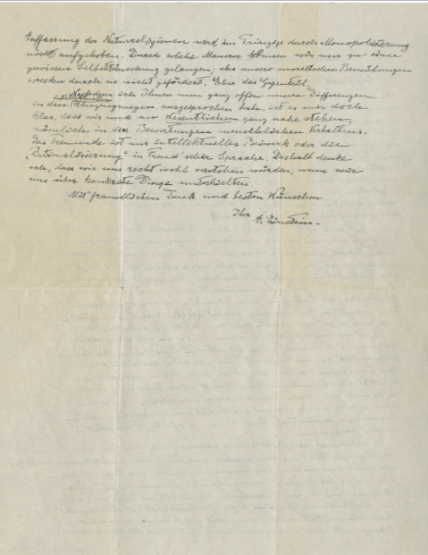 Auffassung der Naturreligionen und im Prinzip durch Monopolisierung
nicht aufgehoben. Durch solche Mauern können wir nur zu einer
gewissen Selbsttäuschung gelangen; aber unsere moralischen Bemühungen
werden durch sie nicht gefördert. Eher das Gegenteil.
Nachdem ich Ihnen nun ganz offen unsere Differenzen
in den intellektuellen Überzeugungen ausgesprochen habe, ist es mir doch
klar, dass wir uns im Wesentlichen ganz nahe stehen,
nämlich in den Bewertungen menschlichen Verhaltens.
Das Trennende ist nur intellektuelles Beiwerk oder die
„Rationalisierung" in Freud'scher Sprache. Deshalb denke
ich, dass wir uns recht wohl verstehen würden, wenn wir
uns über konkrete Dinge unterhielten.
Mit freundlichem Dank und besten Wünschen
Ihr A. Einstein.